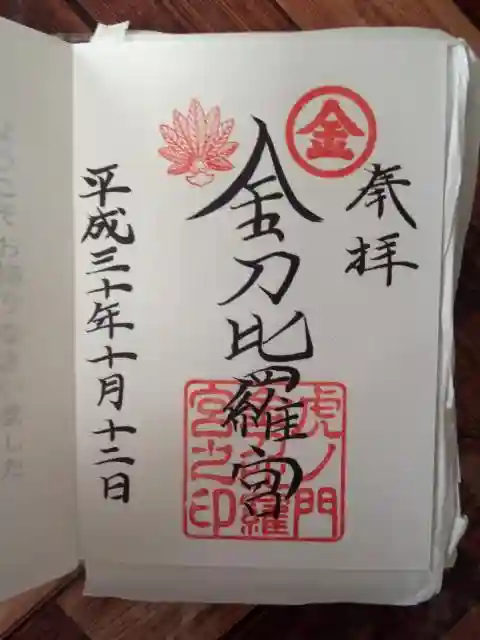 奉拝
金
金刀比羅宮
虎ノ門
宮之印
平成三十年十月十二日